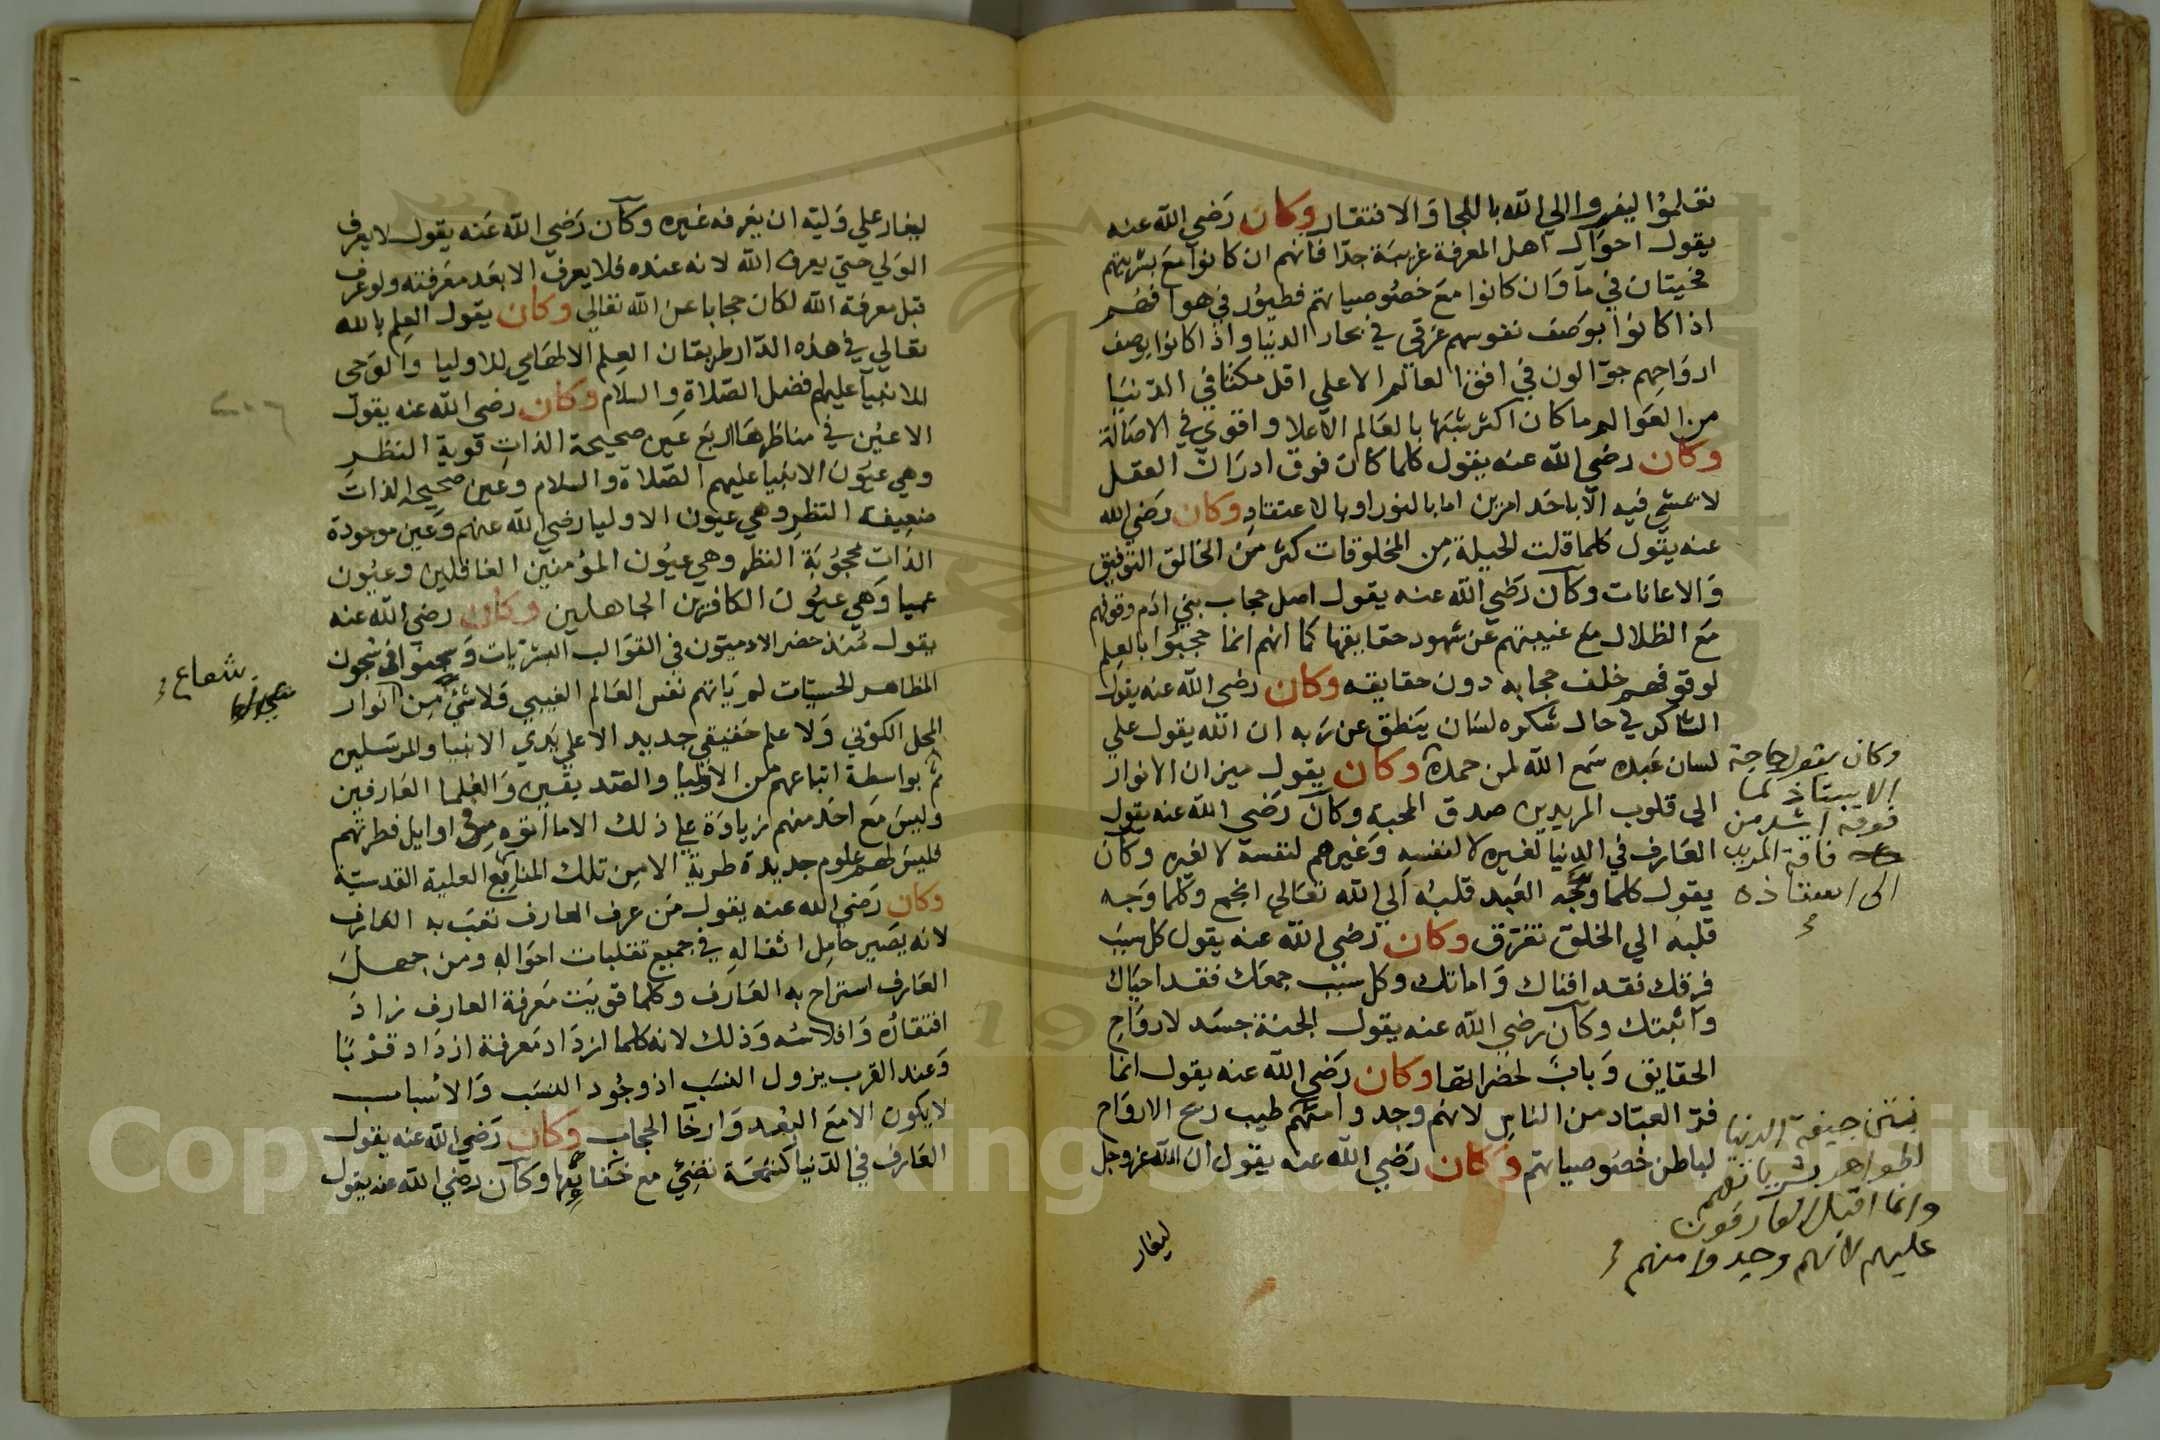 تقلموا ليفروا الي الله باللجا والافتقار وكان رضي الله عنه
يقول احوال اهل المعرفة غريبة جدا فانهم ان كانوا مع بشريتهم
فحيتان في ما وان كانوا مع خصوصياتهم فطيور في هوا فهم
اذا كانوا بوصف نفوسهم غرقي في بحار الدنيا واذا كانوا بوصف
ارواحهم جوالون في افق العالم الاعلي اقل مكثا في الدنيا
من العوالم ما كان اكثر شبها بالعالم الاعلا واقوي في الاصالة
وكان رضي الله عنه يقول كلما كان فوق ادراك العقل
لا تمشي فيه الا باحد امرين اما بالنور او بالاعتقاد وكان رضي الله
عنه يقول كلما قلت الحيلة من المخلوقات كثر من الخالق التوفيق
والاعانات وكان رضي الله عنه يقول اصل حجاب بني ادم وقوفهم
مع الظلال مع غيبتهم عن شهود حقايقها كما انهم انما حجبوا بالعلم
لوقوفهم خلف حجابه دون حقايقه وكان رضي الله عنه يقول
الشاكر في حال شكره لسان ينطق عن ربه ان الله يقول علي
لسان عبده سمع الله لمن حمده وكان يقول ميزان الانوار
الي قلوب المريدين صدق المحبة وكان رضي الله عنه يقول
العارف في الدنيا لغيره لا لنفسه وغيرهم لنفسه لا لغيره وكان
يقول كلما وجه العبد قلبه الي الله تعالي انجمع وكلما وجه
قلبه الي الخلق تفرق وكان رضي الله عنه يقول كل سبب
فرقك فقد افناك واماتك وكل سبب جمعك فقد احياك
واثبتك وكان رضي الله عنه يقول الجنة جسد لارواح
الحقايق وباب لحضراتها وكان رضي الله عنه يقول انما
فر العباد من الناس لانهم وجدوا منهم طيب ريح الارواح
لباطن خصوصياتهم وكان رضي الله عنه يقول ان الله عز وجل
ليغار
وكان يقول حاجة
الاستاذ لما
فوقه اشد من
فاقة المريد
الى استاذه
نتن جيفة الدنيا
لظواهر بشرياتهم
وانما اقبل العارفون
عليهم لانهم وجدوا منهم
ليغار علي وليه ان يعرفه غيره وكان رضي الله عنه يقول لا يعرف
الولي حتي يعرف الله لانه عنده فلا يعرف الا بعد معرفته ولو عرف
قبل معرفة الله لكان حجابا عن الله تعالي وكان يقول العلم بالله
تعالي في هذه الدار طريقان العلم الالهامي للاوليا والوحي
للانبيا عليهم افضل الصلاة والسلام وكان رضي الله عنه يقول
الاعين في مناظرها اربع عين صحيحة الذات قوية النظر
وهي عيون الانبيا عليهم الصلاة والسلام وعين صحيحه الذات
ضعيفة النظر وهي عيون الاوليا رضي الله عنهم وعين موجودة
الذات محجوبة النظر وهي عيون المؤمنين الغافلين وعيون
عميا وهي عيون الكافرين الجاهلين وكان رضي الله عنه
يقول منذ حضر الادميون في القوالب البشريات وسجنوا في سجون
المظاهر الحسيات لم ياتهم نفس العالم الغيبي فلا شي من انوار
المحل الكوني ولا علم حقيقي جديد الا علي يدي الانبيا والمرسلين
ثم بواسطة اتباعهم من الاوليا والصديقين والعلما العارفين
وليس مع احد منهم زيادة علي ذلك الا ما اتوه في اوايل فطرتهم
فليس لهم علوم جديدة طرية الا من تلك المنابع العلية القدسية
وكان رضي الله عنه يقول من عرف العارف تعب به العارف
لانه يصير حامل اثقاله في جميع تقلبات احواله ومن جهل
العارف استراح به العارف وكلما قويت معرفة العارف زاد
افتقاره وافلاسه وذلك لانه كلما ازداد معرفة ازداد قربا
وعند القرب يزول النسب اذ وجود النسب والاسباب
لا يكون الا مع البعد وارخا الحجاب وكان رضي الله عنه يقول
العارف في الدنيا كشمعة تضئ مع خفايها وكان رضي الله عنه يقول
شعاع
Copyright © King Saud University